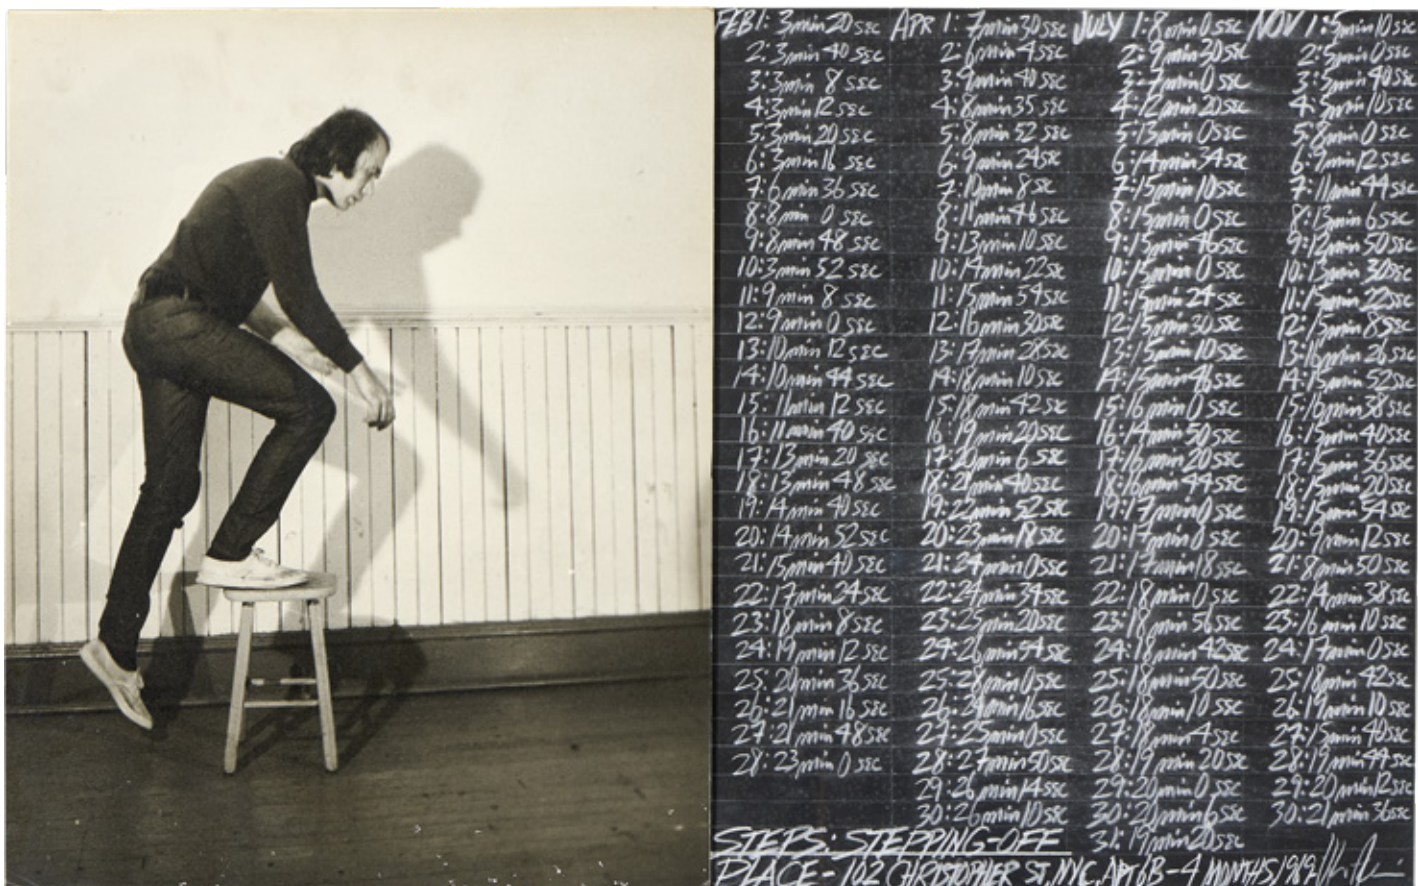 FEB 1: 3min 20 sec
2: 3min 40 sec
3: 3min 8 sec
4: 3min 12 sec
5: 3min 20 sec
6: 3min 16 sec
7: 6min 36 sec
8: 8min 0 sec
9: 8min 48 sec
10: 3min 52 sec
11: 9min 8 sec
12: 9min 0 sec
13: 10min 12 sec
14: 10min 44 sec
15: 11min 12 sec
16: 11min 40 sec
17: 13min 20 sec
18: 13min 48 sec
19: 14min 40 sec
20: 14min 52 sec
21: 15min 40 sec
22: 17min 24 sec
23: 18min 8 sec
24: 19min 12 sec
25: 20min 36 sec
26: 21min 16 sec
27: 21min 48 sec
28: 23min 0 sec
APR 1: 7min 30 sec
2: 6min 4 sec
3: 9min 40 sec
4: 8min 35 sec
5: 8min 52 sec
6: 9min 24 sec
7: 10min 8 sec
8: 11min 46 sec
9: 13min 10 sec
10: 14min 22 sec
11: 15min 54 sec
12: 16min 30 sec
13: 17min 28 sec
14: 18min 10 sec
15: 18min 42 sec
16: 19min 20 sec
17: 20min 6 sec
18: 21min 40 sec
19: 22min 52 sec
20: 23min 18 sec
21: 24min 0 sec
22: 24min 34 sec
23: 25min 20 sec
24: 26min 54 sec
25: 28min 0 sec
26: 29min 16 sec
27: 25min 0 sec
28: 27min 50 sec
29: 26min 14 sec
30: 26min 10 sec
JULY 1: 8min 0 sec
2: 9min 30 sec
3: 7min 0 sec
4: 12min 20 sec
5: 13min 0 sec
6: 14min 34 sec
7: 15min 10 sec
8: 15min 0 sec
9: 15min 46 sec
10: 15min 0 sec
11: 15min 24 sec
12: 15min 30 sec
13: 15min 10 sec
14: 15min 46 sec
15: 16min 0 sec
16: 14min 50 sec
17: 16min 20 sec
18: 16min 44 sec
19: 17min 0 sec
20: 17min 0 sec
21: 17min 18 sec
22: 18min 0 sec
23: 18min 56 sec
24: 18min 42 sec
25: 18min 50 sec
26: 18min 10 sec
27: 18min 4 sec
28: 19min 20 sec
29: 20min 0 sec
30: 20min 6 sec
31: 19min 20 sec
NOV 1: 5min 10 sec
2: 5min 0 sec
3: 5min 40 sec
4: 5min 10 sec
5: 8min 0 sec
6: 9min 12 sec
7: 11min 44 sec
8: 13min 6 sec
9: 12min 50 sec
10: 13min 30 sec
11: 15min 22 sec
12: 15min 8 sec
13: 16min 26 sec
14: 15min 52 sec
15: 16min 38 sec
16: 15min 40 sec
17: 15min 36 sec
18: 15min 20 sec
19: 15min 54 sec
20: 9min 12 sec
21: 8min 50 sec
22: 14min 38 sec
23: 16min 10 sec
24: 17min 0 sec
25: 18min 42 sec
26: 19min 10 sec
27: 15min 40 sec
28: 19min 44 sec
29: 20min 12 sec
30: 21min 36 sec
STEPS: STEPPING-OFF
PLACE - 102 CHRISTOPHER ST, NYC, APT 6B - 4 MONTHS/